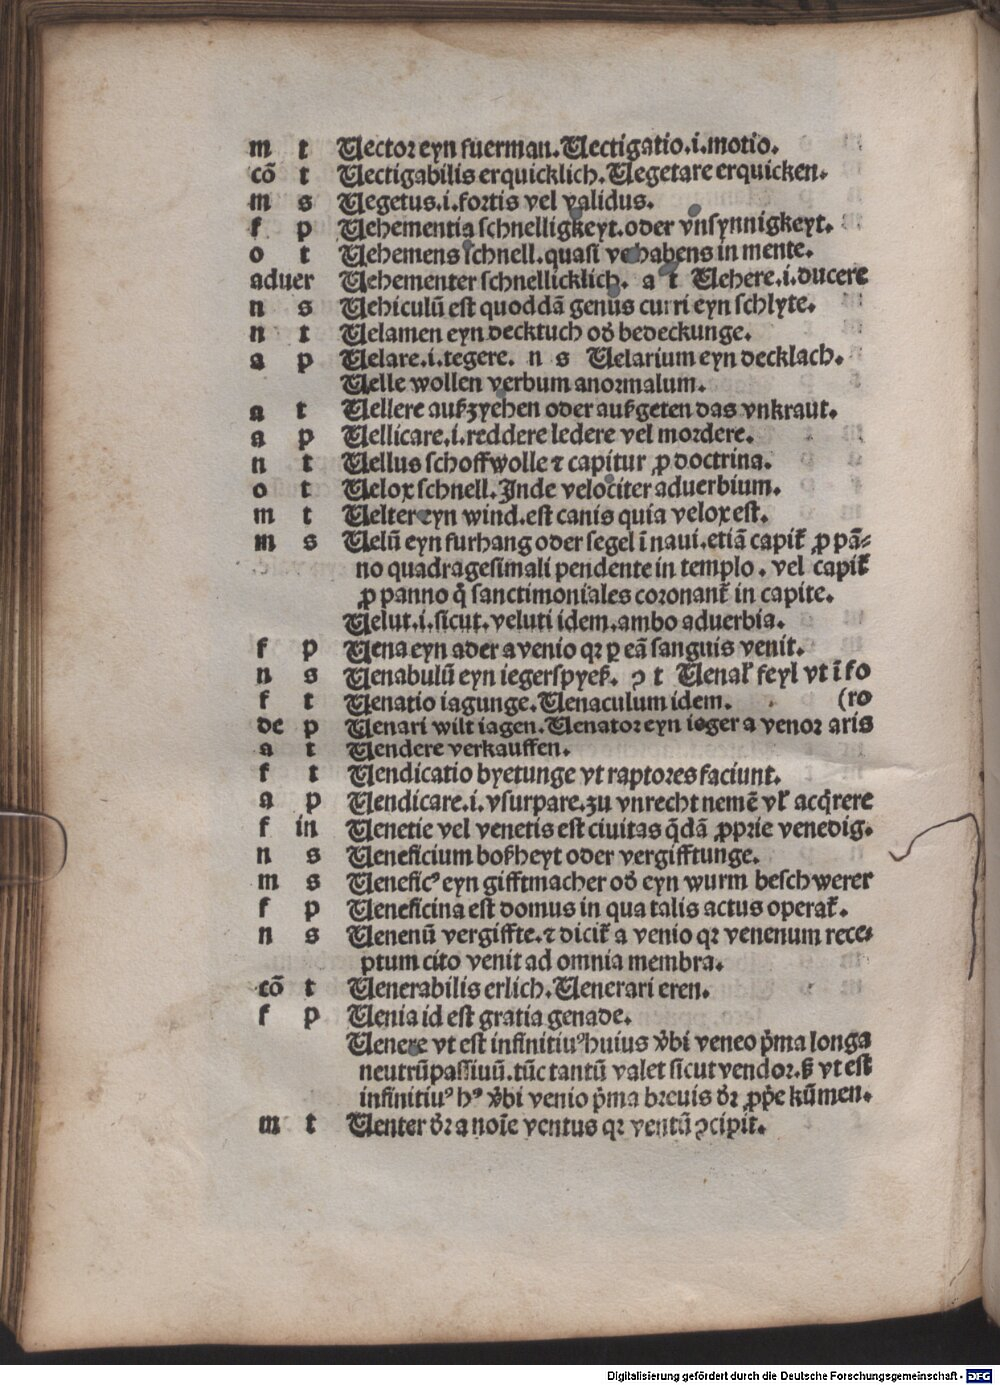 m t Uector eyn fuerman. Uectigatio.i.motio.
cō t Uectigabilis erquicklich. Uegetare erquicken.
m s Uegetus.i.fortis vel validus.
f p Uehementia schnelligkeyt.oder vnsynnigkeyt.
o t Uehemens schnell.quasi ve habens in mente.
aduer Uehementer schnellicklich. a t Uehere.i.ducere
n s Uehiculū est quoddā genus curri eyn schlyte.
n t Uelamen eyn decktuch oď bedeckunge.
a p Uelare.i.tegere. n s Uelarium eyn decklach.
Uelle wollen verbum anormalum.
a t Uellere außzyehen oder außgeten das vnkraut.
a p Uellicare.i.reddere ledere vel mordere.
n t Uellus schoffwolle ⁊ capitur ꝓ doctrina.
o t Uelox schnell. Inde velociter aduerbium.
m t Uelter eyn wind.est canis quia velox est.
m s Uelū eyn furhang oder segel ī naui.etiā capit̄ ꝓ pā-
no quadragesimali pendente in templo. vel capit̄
ꝓ panno q̄ sanctimoniales coronant̄ in capite.
Uelut.i.sicut.veluti idem.ambo aduerbia.
f p Uena eyn ader a venio qꝛ ꝑ eā sanguis venit.
n s Uenabulū eyn iegerspyeß. ꝯ t Uenal̄ feyl vt ī fo
f t Uenatio iagunge. Uenaculum idem. (ro
de p Uenari wilt iagen. Uenator eyn ieger a venor aris
a t Uendere verkauffen.
f t Uendicatio byetunge vt raptores faciunt.
a p Uendicare.i.vsurpare.zu vnrecht nemē vl̄ acq̄rere
f in Uenetie vel venetis est ciuitas q̄dā ꝓprie venedig.
n s Ueneficium boßheyt oder vergifftunge.
m s Uenefic⁹ eyn gifftmacher oď eyn wurm beschwerer
f p Ueneficina est domus in qua talis actus operat̄.
n s Uenenū vergiffte.⁊ dicit̄ a venio qꝛ venenum rece-
ptum cito venit ad omnia membra.
cō t Uenerabilis erlich. Uenerari eren.
f p Uenia id est gratia genade.
Uenere vt est infinitiu⁹ huius v̄bi veneo p̄ma longa
neutrūpassiuū.tūc tantū valet sicut vendor.ß vt est
infinitiu⁹ h⁹ v̄bi venio p̄ma breuis ďr ꝓpe kūmen.
m t Uenter ďr a noīe ventus qꝛ ventū ꝯcipit.
Digitalisierung gefördert durch die Deutsche Forschungsgemeinschaft - DFG